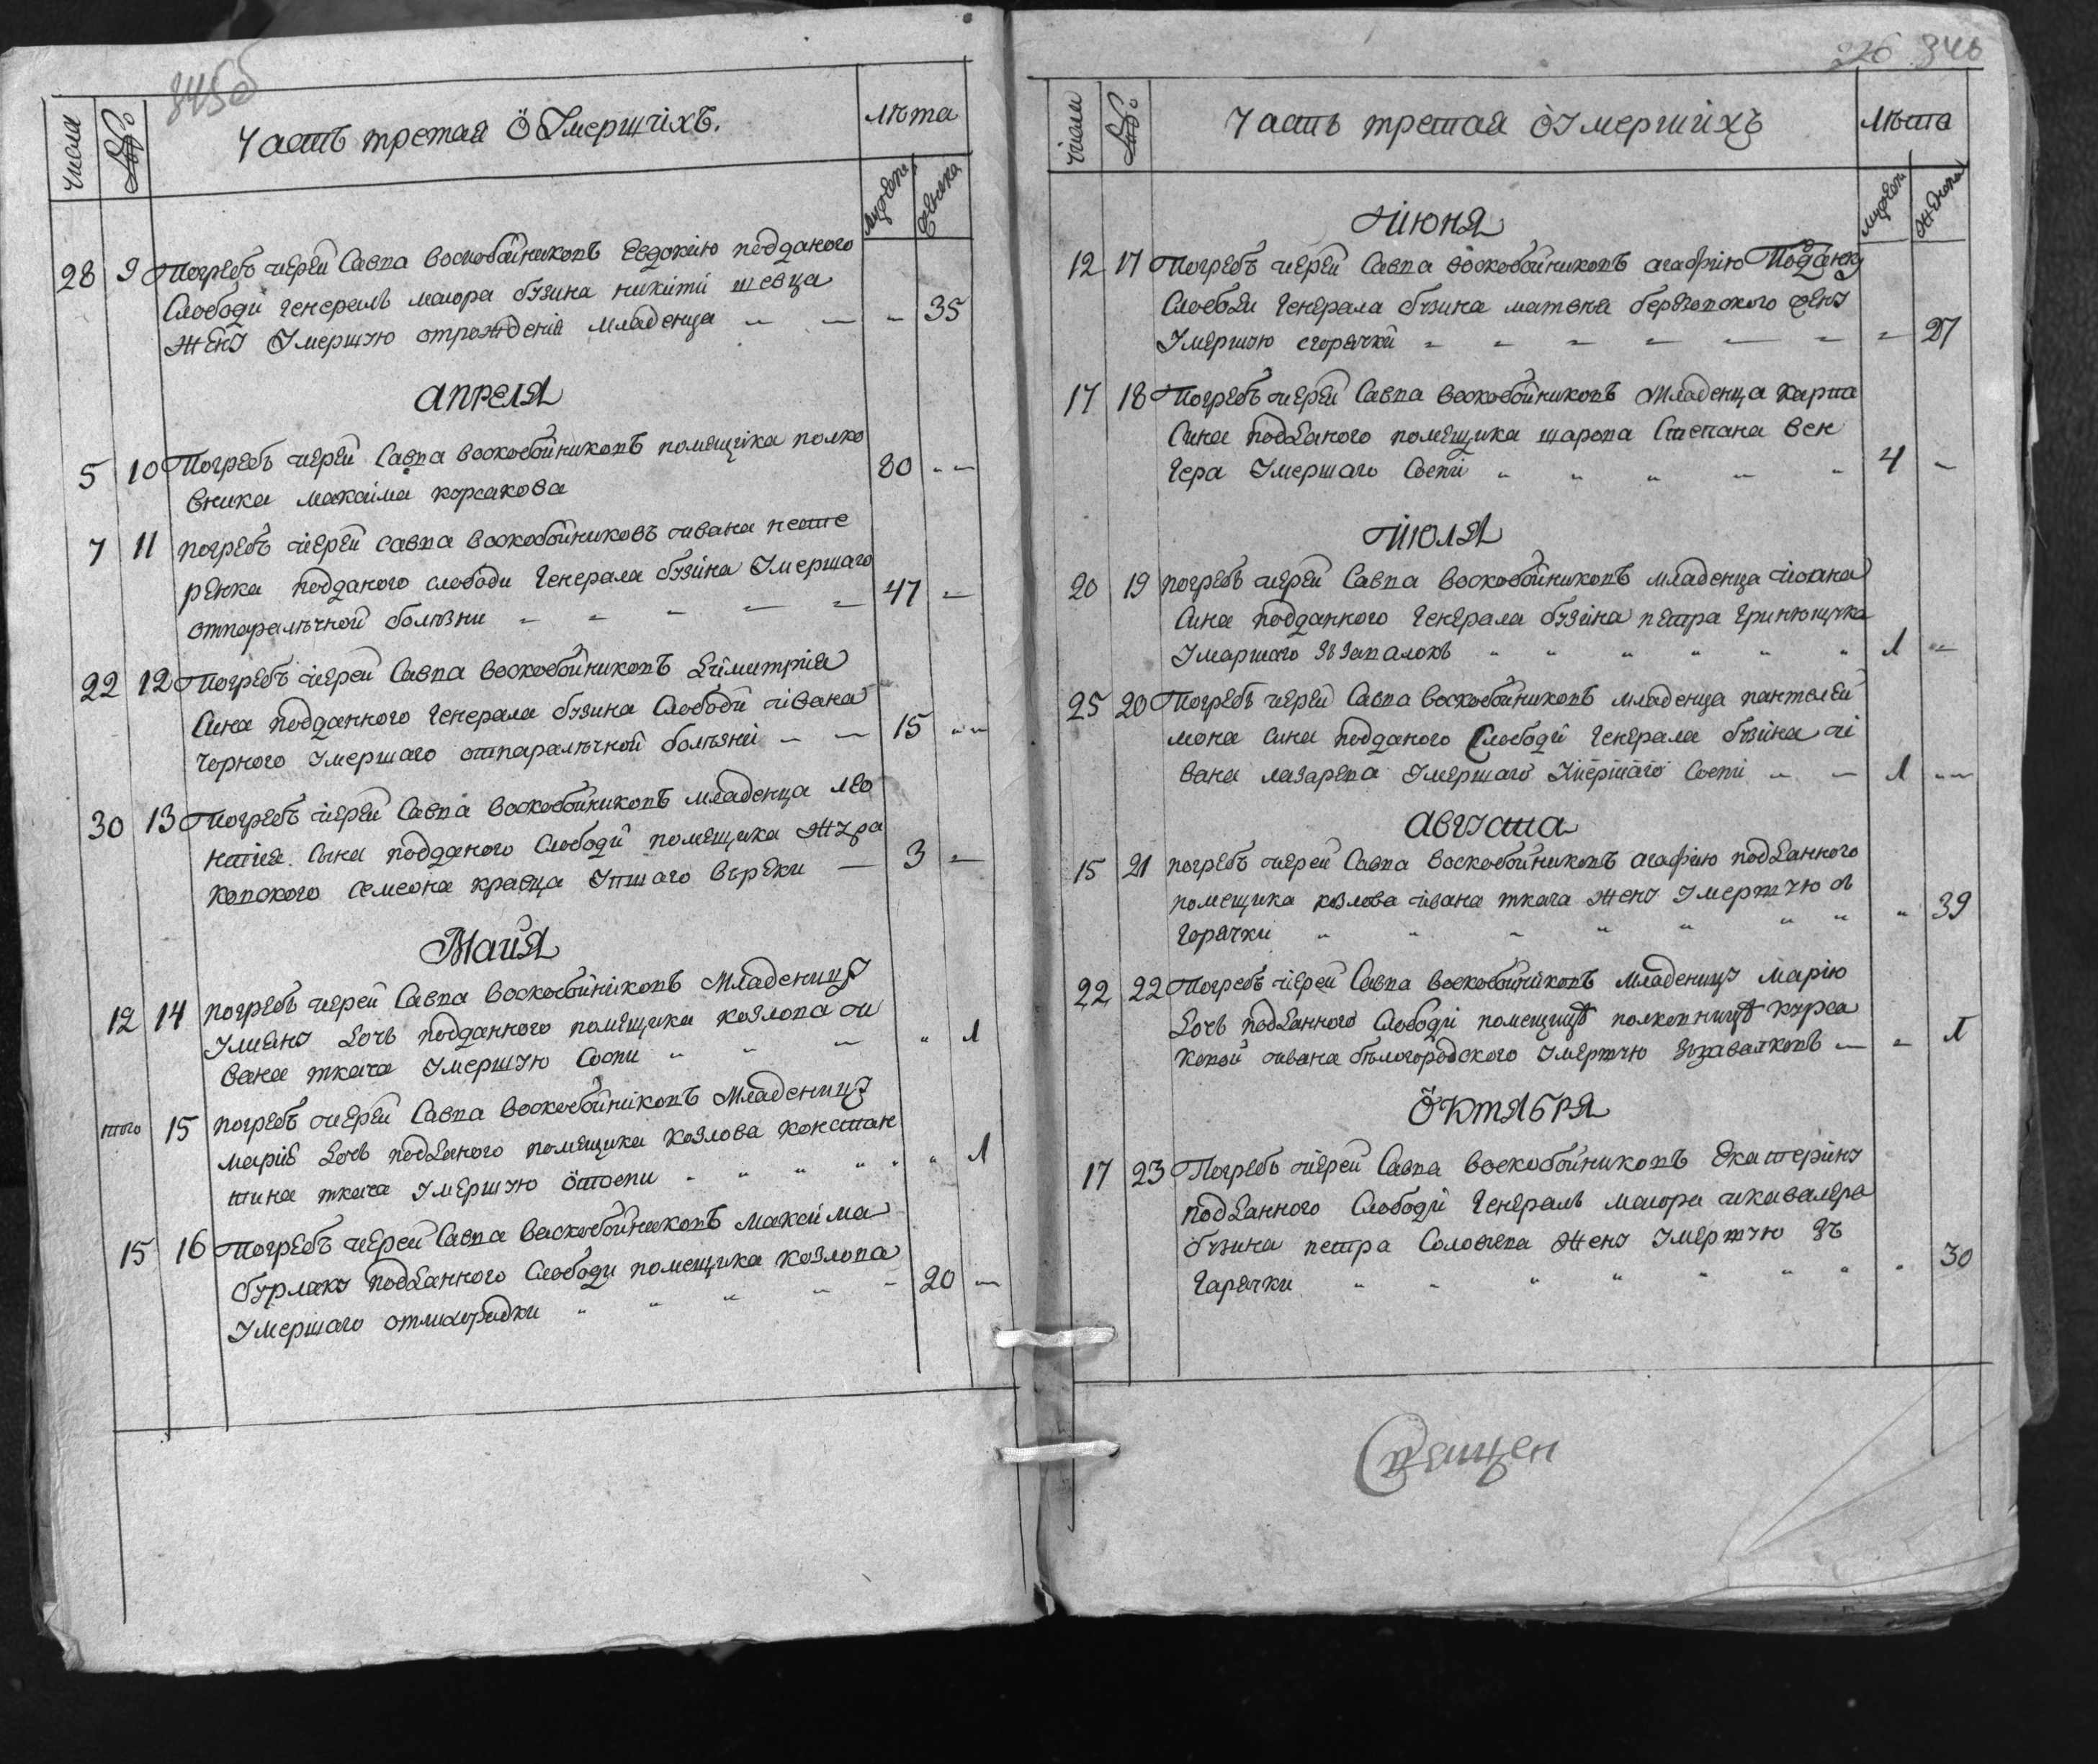 345об
числа
Часть третая ӦУмершихъ.
лѣта
мужеска
28 9 Погребъ иерей Савва воскобойниковъ Евдокию подданого
Слободи генералъ маиора бузина никити шевца
жену Умершую отрождения младенца 35
Апреля
5 10 Погребъ иерей Савва воскобойниковъ помещика полко
вника максима корсакова 80
7 11 погребъ иерей савва воскобойниковъ ивана пете
ренка подданого слободи генерала бузина Умершаго
отпаралѣчной болѣзни 47
22 12 Погребъ иерей Савва воскобойниковъ Димитрия
Сина подданного генерала бузина Слободи ивана
Чорного Умершаго отпаралѣчной болѣзни 15
30 13 Погребъ иерей Савва воскобойниковъ младенца лео
нтия сына подданого Слободи помещика жура
ковского семеона кравца Утпшаго върѣки 3
Маия
12 14 погребъ иерей Савва воскобойниковъ младеницу
Улияну дочь подданного помещика козлова и
вана ткача Умершую Соспи 1
того 15 погребъ иерей Савва воскобойниковъ младеницу
марию дочь подданого помещика козлова констан
тина ткача Умершую ӧтоспи 1
15 16 Погребъ иерей Савва воскобойниковъ максима
бурлаку подданного Слободи помещика козлова
Умершаго отлихорадки 20
226 346
числа
Часть третая ӦУмершихъ
лѣта
мужеска
женска
июня
12 17 Погребъ иерей Савва воскобойниковъ агафию Поданку
Слободи генерала бузина матвея березовского жену
Умершую сгорячки 27
17 18 Погребъ иерей Савва воскобойниковъ младенца карпа
Сина подданого помещика шарова Степана вен
гера Умершаго Соспи 4
июля
20 19 погребъ иерей Савва воскобойниковъ младенца иоана
Сина подданного генерала бузина петра гринющука
Умаршаго зъзапалокъ 1
25 20 Погребъ иерей Савва воскобойниковъ младенца пантелей
мона сина подданого Слободи генерала бузина и
вана лазарева Умершаго Умершаго Соспи 1
Августа
15 21 погребъ иерей Савва воскобойниковъ агафию подданного
помещика козлова ивана ткача жену Умершую з
горячки 39
22 22 Погребъ иерей Савва воскобойниковъ младеницу марию
дочь подданного Слободи помещици полковници курса
ковой ивана бѣлогородского Умершую зъзавалковъ 1
Ӧктября
17 23 Погребъ иерей Савва воскобойниковъ Екатерину
подданного Слободи генералъ маиора икавалера
бузина петра Соловиева жену Умершую зъ
гарячки 30
Священ